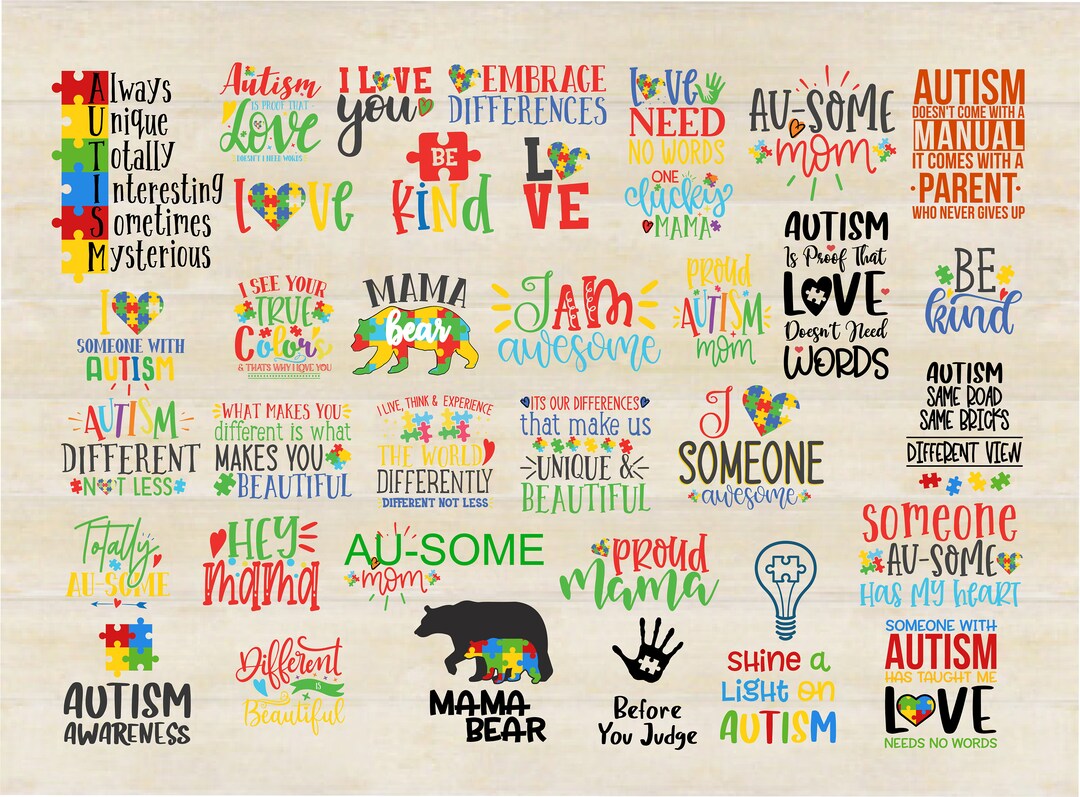 Always
Unique
Totally
Interesting
Sometimes
Mysterious
Autism
IS PROOF THAT
Love
DOESN'T NEED WORDS
I LOVE
you
EMBRACE
DIFFERENCES
Love
NEED
NO WORDS
AU-SOME
mom
AUTISM
DOESN'T COME WITH A
MANUAL
IT COMES WITH A
·PARENT·
WHO NEVER GIVES UP
LOVE
BE
KiNd
LO
VE
ONE
clucky
MAMA
AUTISM
Is Proof That
LOVE
Doesn't Need
WORDS
BE
kind
I
SOMEONE WITH
AUTISM
I SEE YOUR
TRUE
Colors
& THAT'S WHY I LOVE YOU
MAMA
bear
I AM
awesome
PROUD
AUTISM
mom
AUTISM
SAME ROAD
SAME BRICKS
DIFFERENT VIEW
AUTISM
DIFFERENT
NOT LESS
WHAT MAKES YOU
different is what
MAKES YOU
BEAUTIFUL
I LIVE, THINK & EXPERIENCE
THE WORLD
DIFFERENTLY
DIFFERENT NOT LESS
ITS OUR DIFFERENCES
that make us
UNIQUE &
BEAUTIFUL
I
SOMEONE
awesome
Totally
AU-SOME
HEY
mama
AU-SOME
mom
PROUD
mama
someone
AU-SOME
HAS MY heART
AUTISM
AWARENESS
Different
IS
Beautiful
MAMA
BEAR
Before
You Judge
SHINE a
LIGHT ON
AUTISM
SOMEONE WITH
AUTISM
HAS TAUGHT ME
LOVE
NEEDS NO WORDS